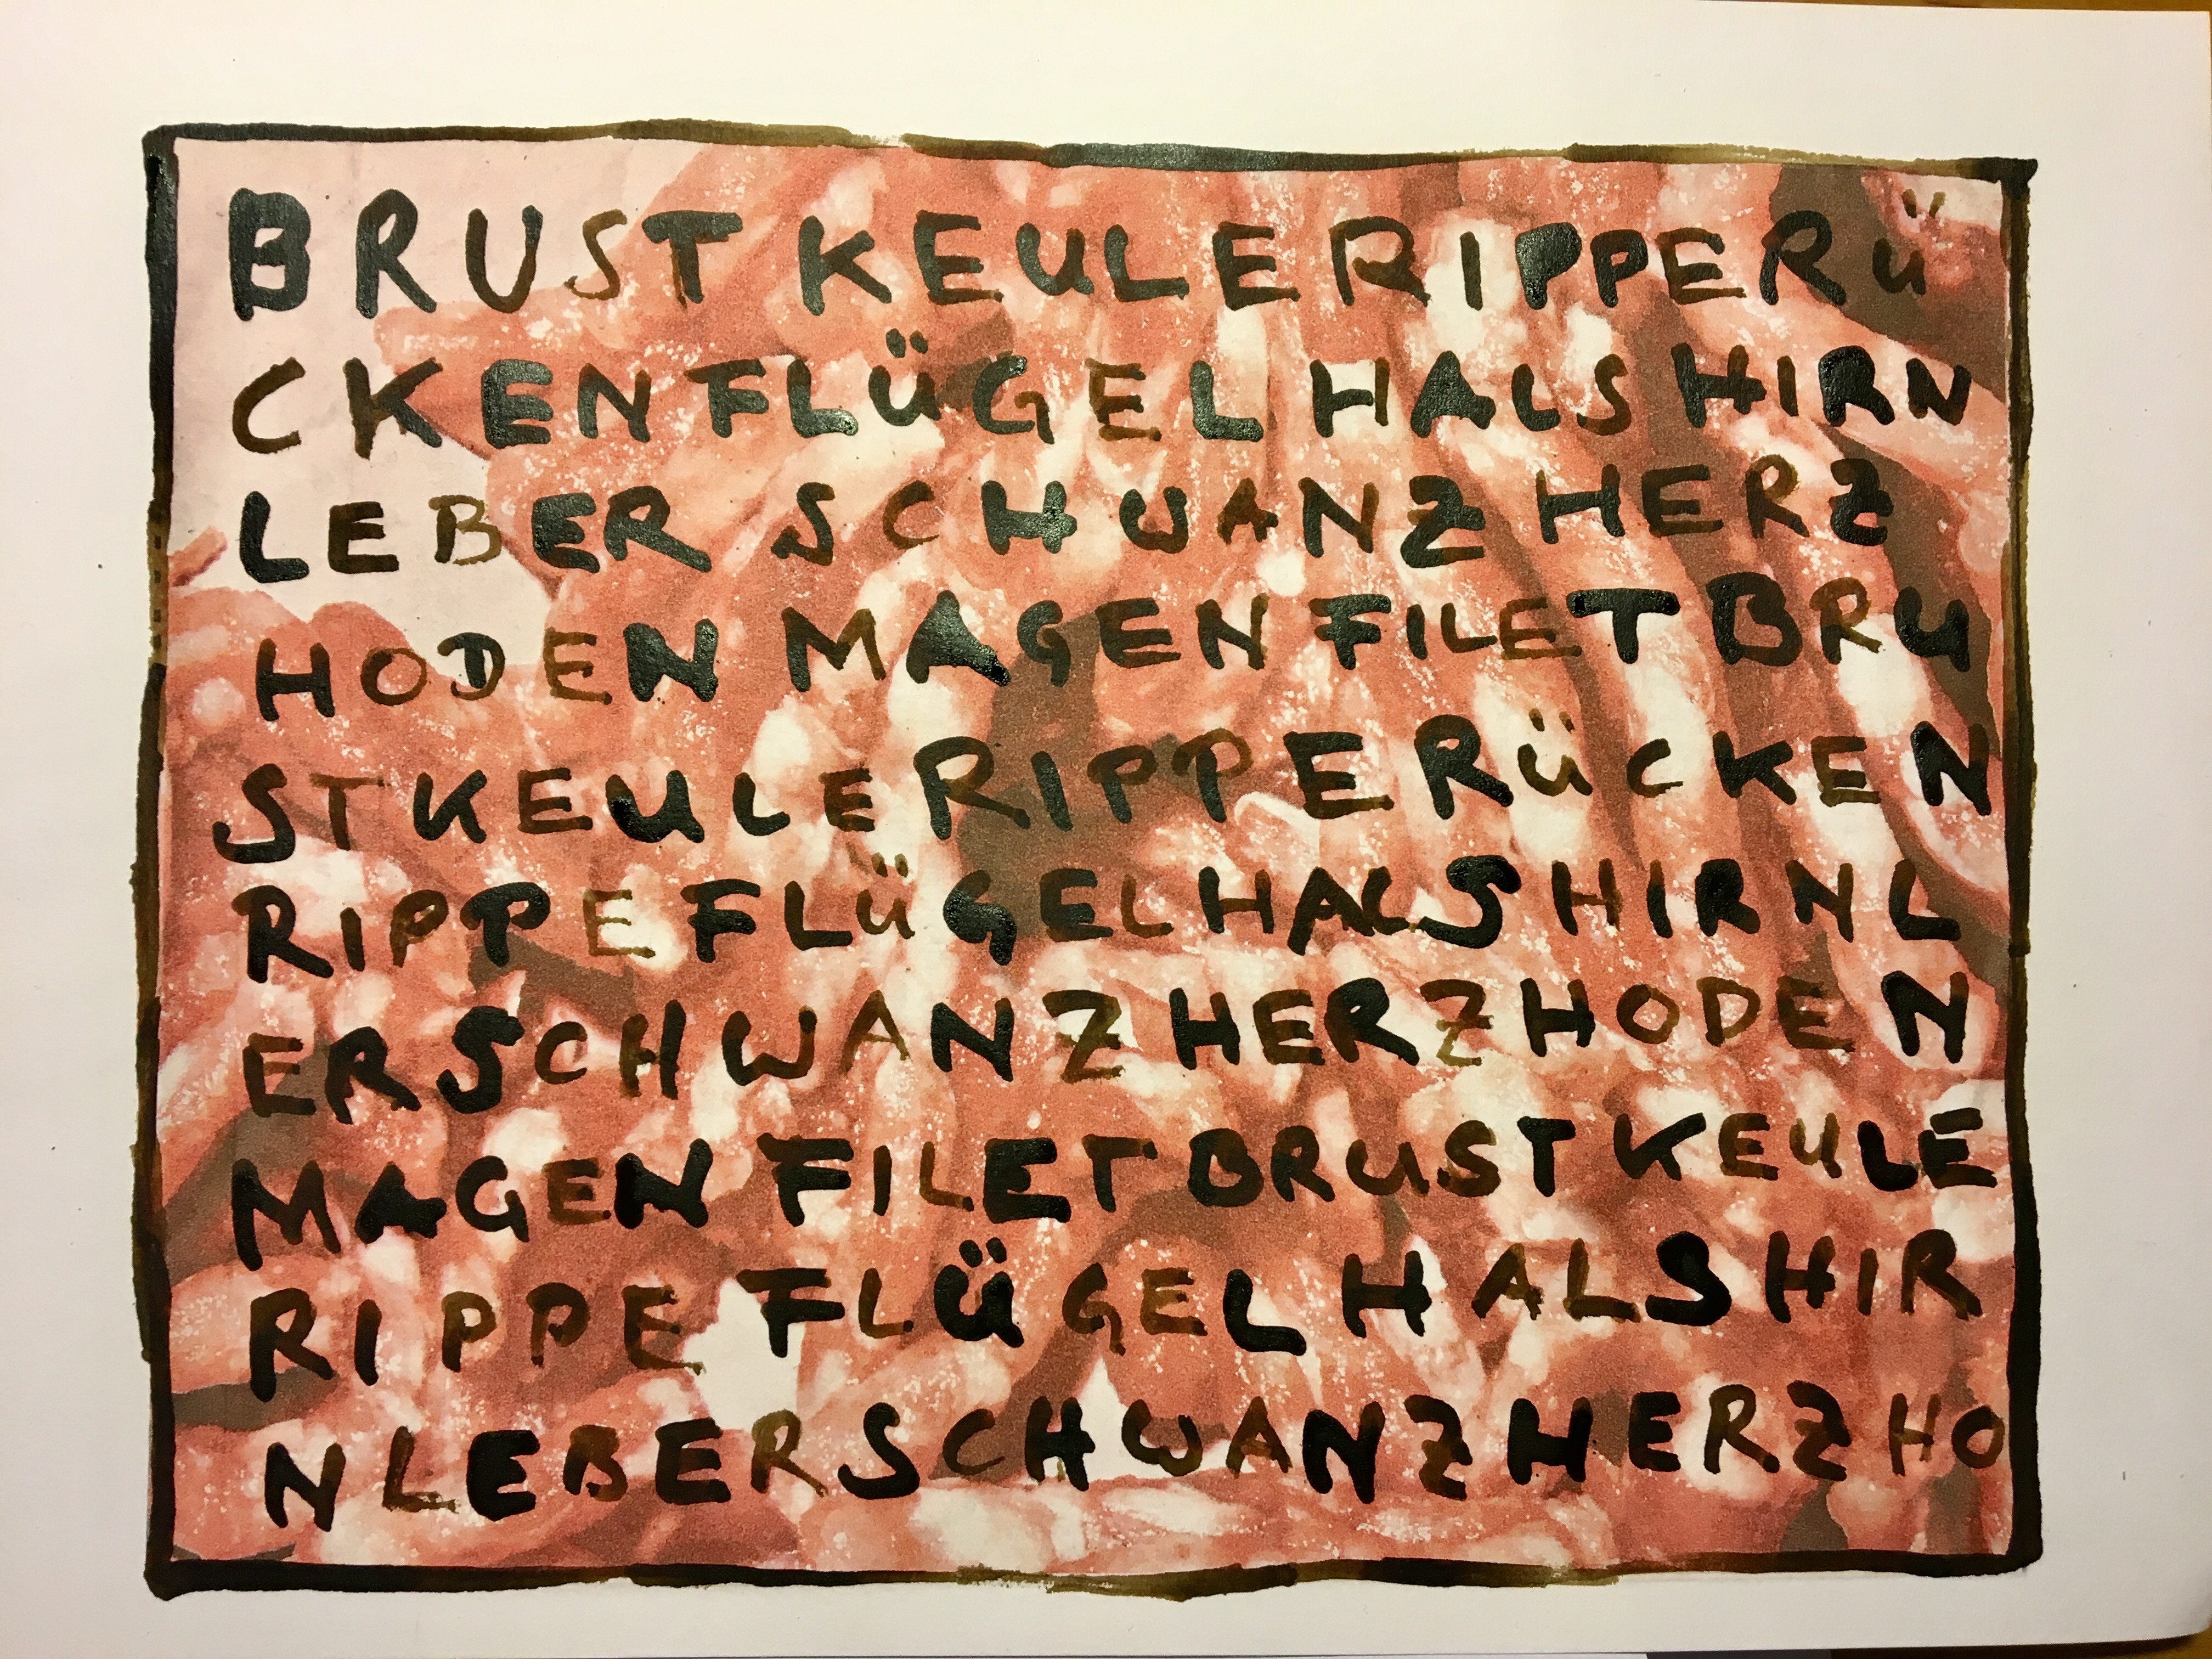 BRUST KEULERIPPERÜ
CKENFLÜGEL HALSHIRN
LEBER SCHWANZ HERZ
HODEN MAGEN FILET BRU
STKEULERIPPERÜCKEN
RIPPE FLÜGELHALSHIRNL
ERSCHWANZHERZHODEN
MAGEN FILETBRUSTKEULE
RIPPE FLÜGEL HALSHIR
NLEBERSCHWANZHERZHO